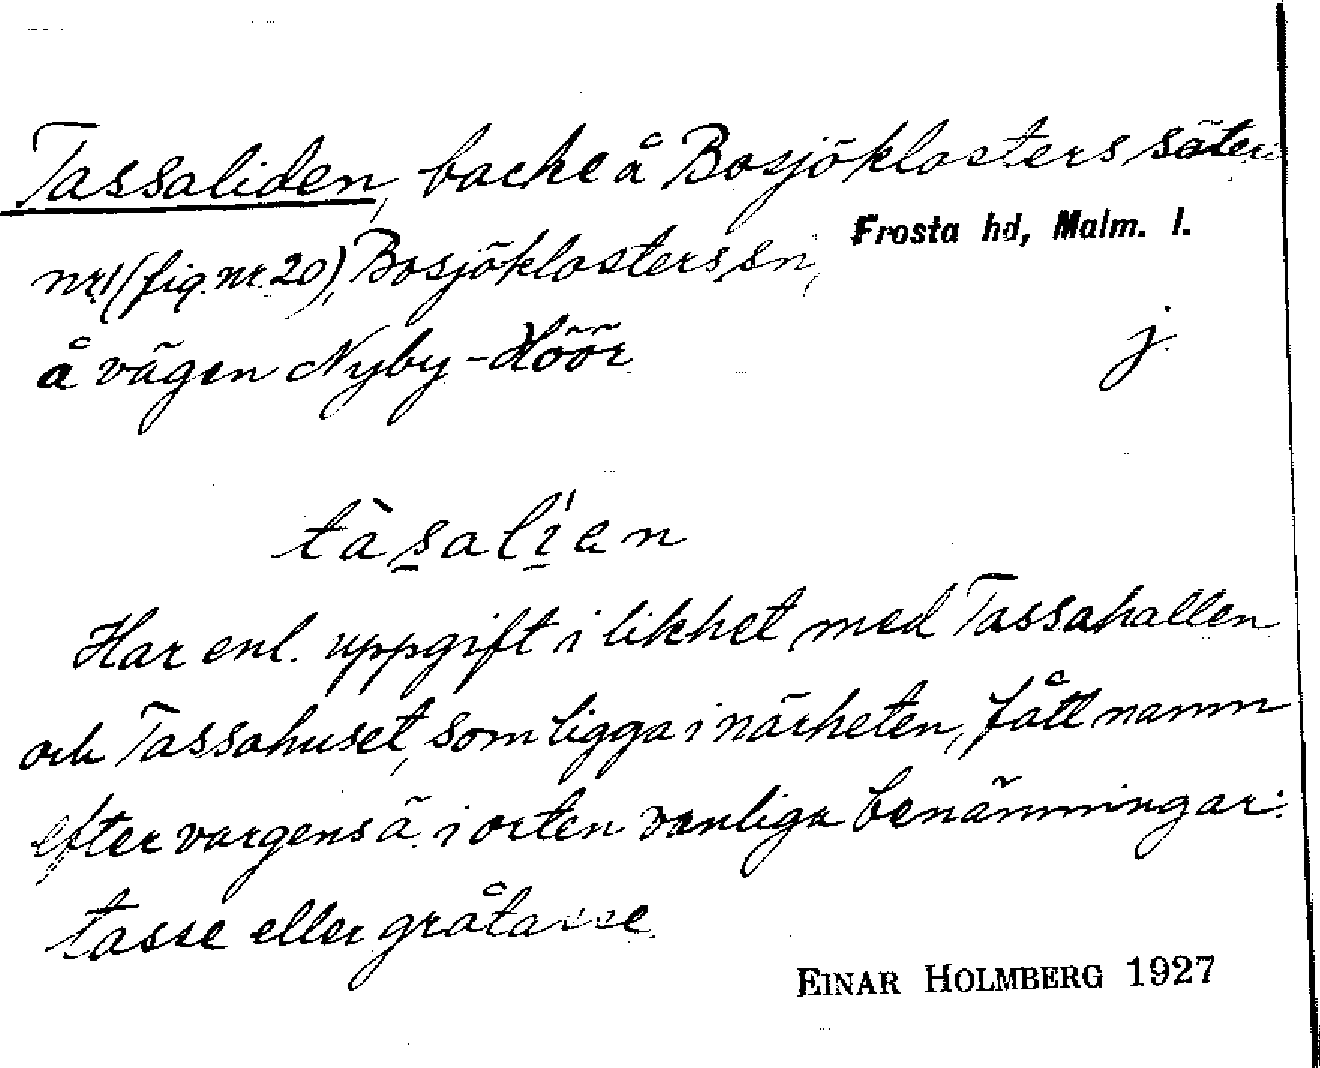 Tassaliden, backe å Bosjöklosters säteri
nr1 (fig. nr. 20), Bosjöklosters sn, Frosta hd, Malm. l.
å vägen Nyby - Höör j.
tàsalíen
Har enl. uppgift i likhet med Tassahallen
och Tassahuset, som ligga i närheten, fått namn
efter vargens ä. i orten vanliga benämningar:
tasse eller gråtasse.
EINAR HOLMBERG 1927